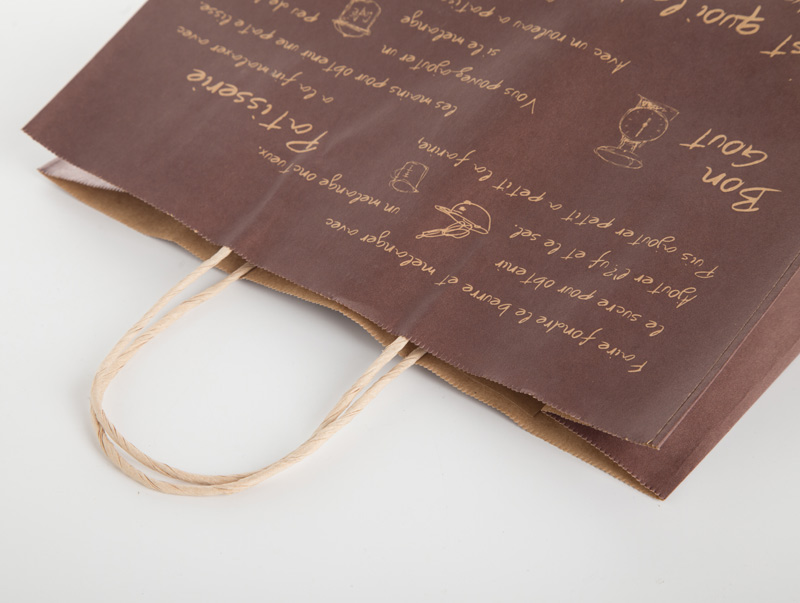 Faire fondre le beurre et melanger avec
le sucre pour obtenir
un melange onctueux.
Ajouter l'œuf et le sel.
Puis ajouter petit a petit la farine,
Patisserie
Bon
Gout
les mains pour obtenir une pate lisse.
a la fin malaxer avec
Vous pouvez ajouter un
si le melange
peu de
Avec un rouleau a
est quoi